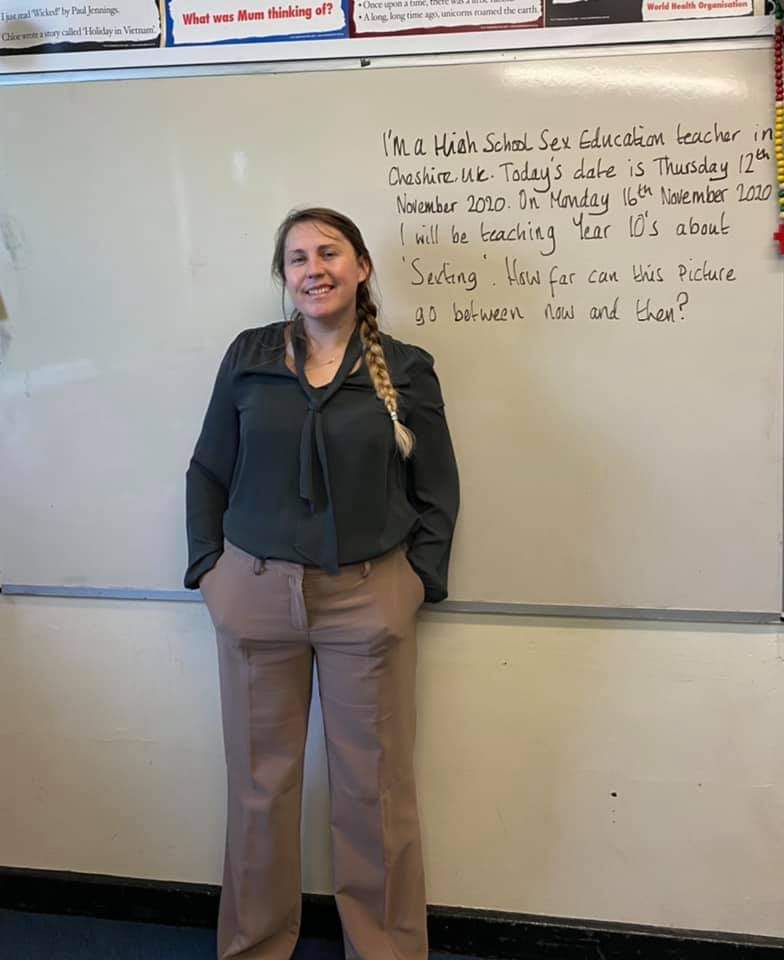 I just read 'Wicked' by Paul Jennings.
Chloe wrote a story called 'Holiday in Vietnam'.
What was Mum thinking of?
• Once upon a time, there was a little
• A long, long time ago, unicorns roamed the earth.
World Health Organisation
I'm a High School Sex Education teacher in
Cheshire. UK. Today's date is Thursday 12th
November 2020. On Monday 16th November 2020
I will be teaching Year 10's about
'Sexting'. How far can this picture
go between now and then?